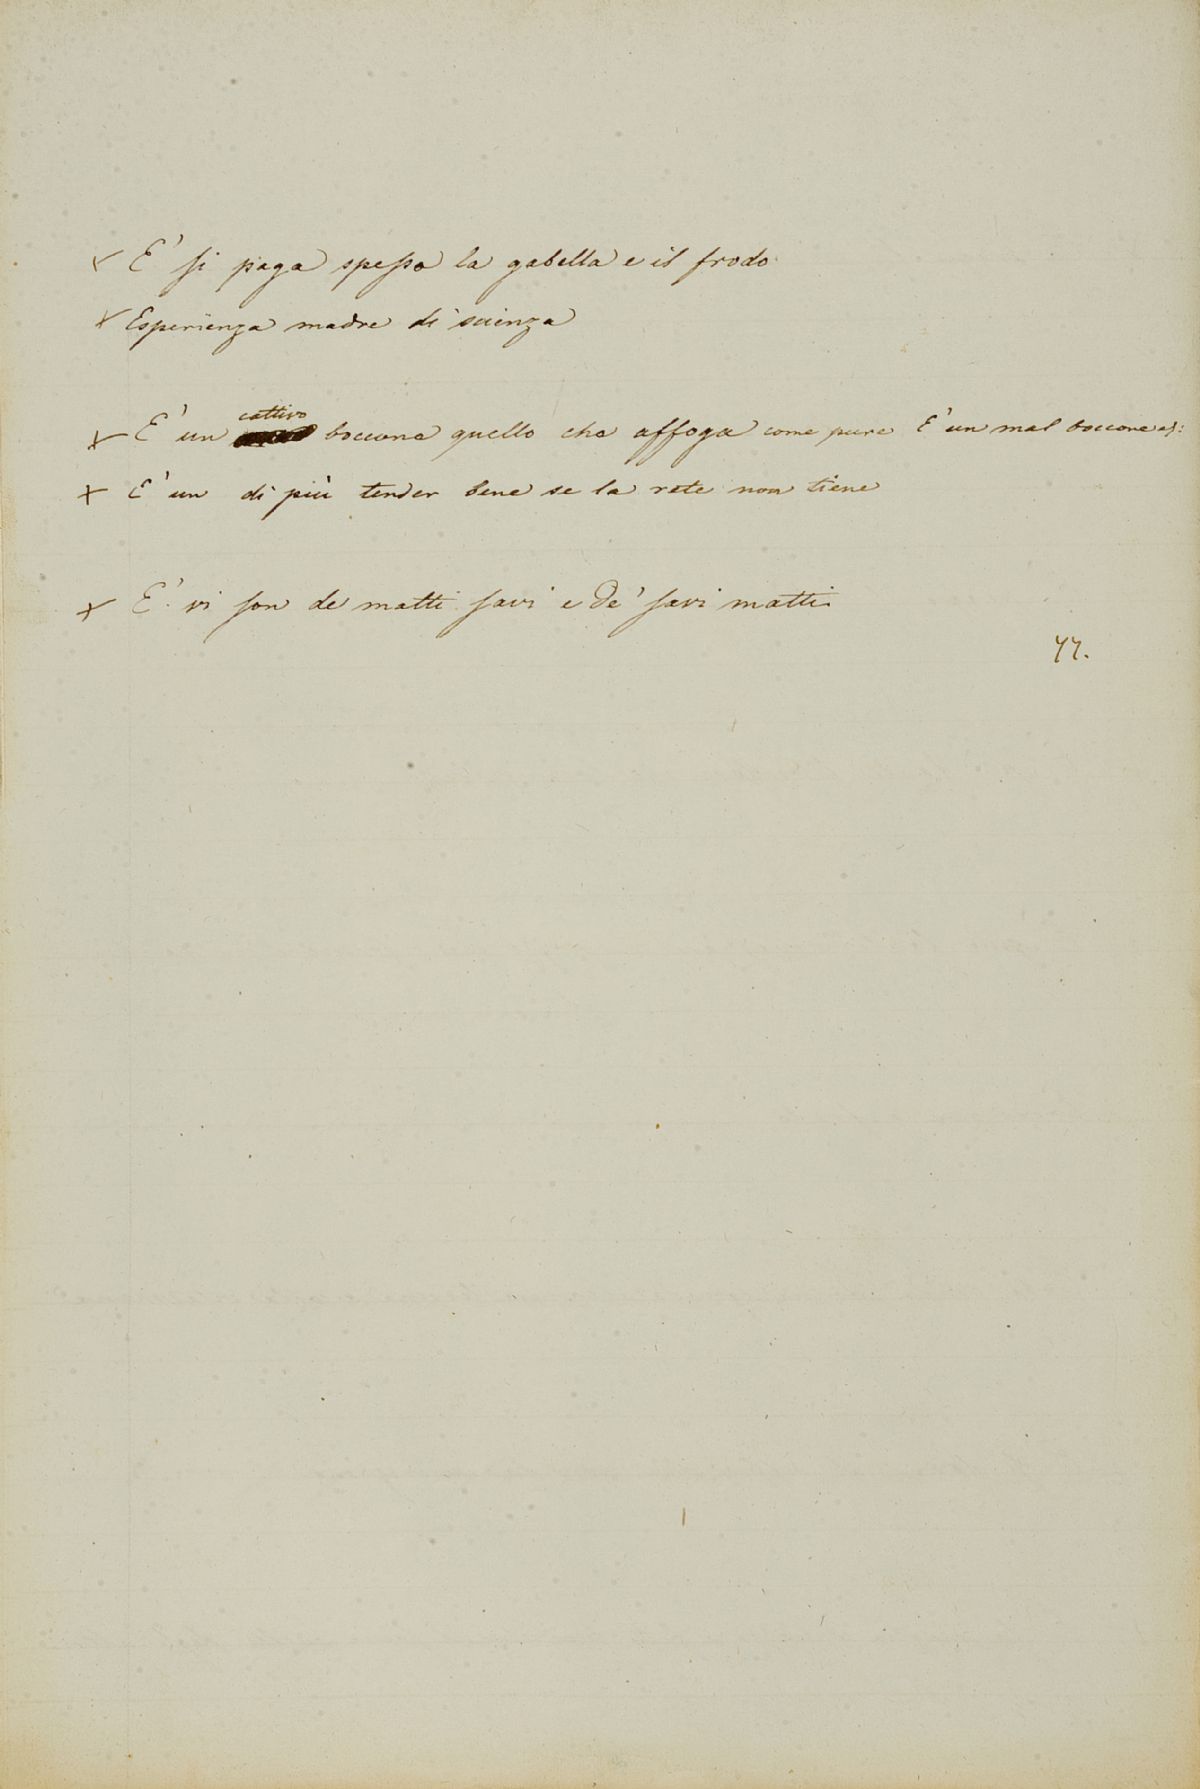 × E' si paga spesso la gabella e il frodo
× Esperienza madre di scienza
× E' un cattivo boccone quello che affoga come pure E' un mal boccone ec:
× E' un di più tender bene se la rete non tiene
× E' vi son de matti savi e de' savi matti
77.